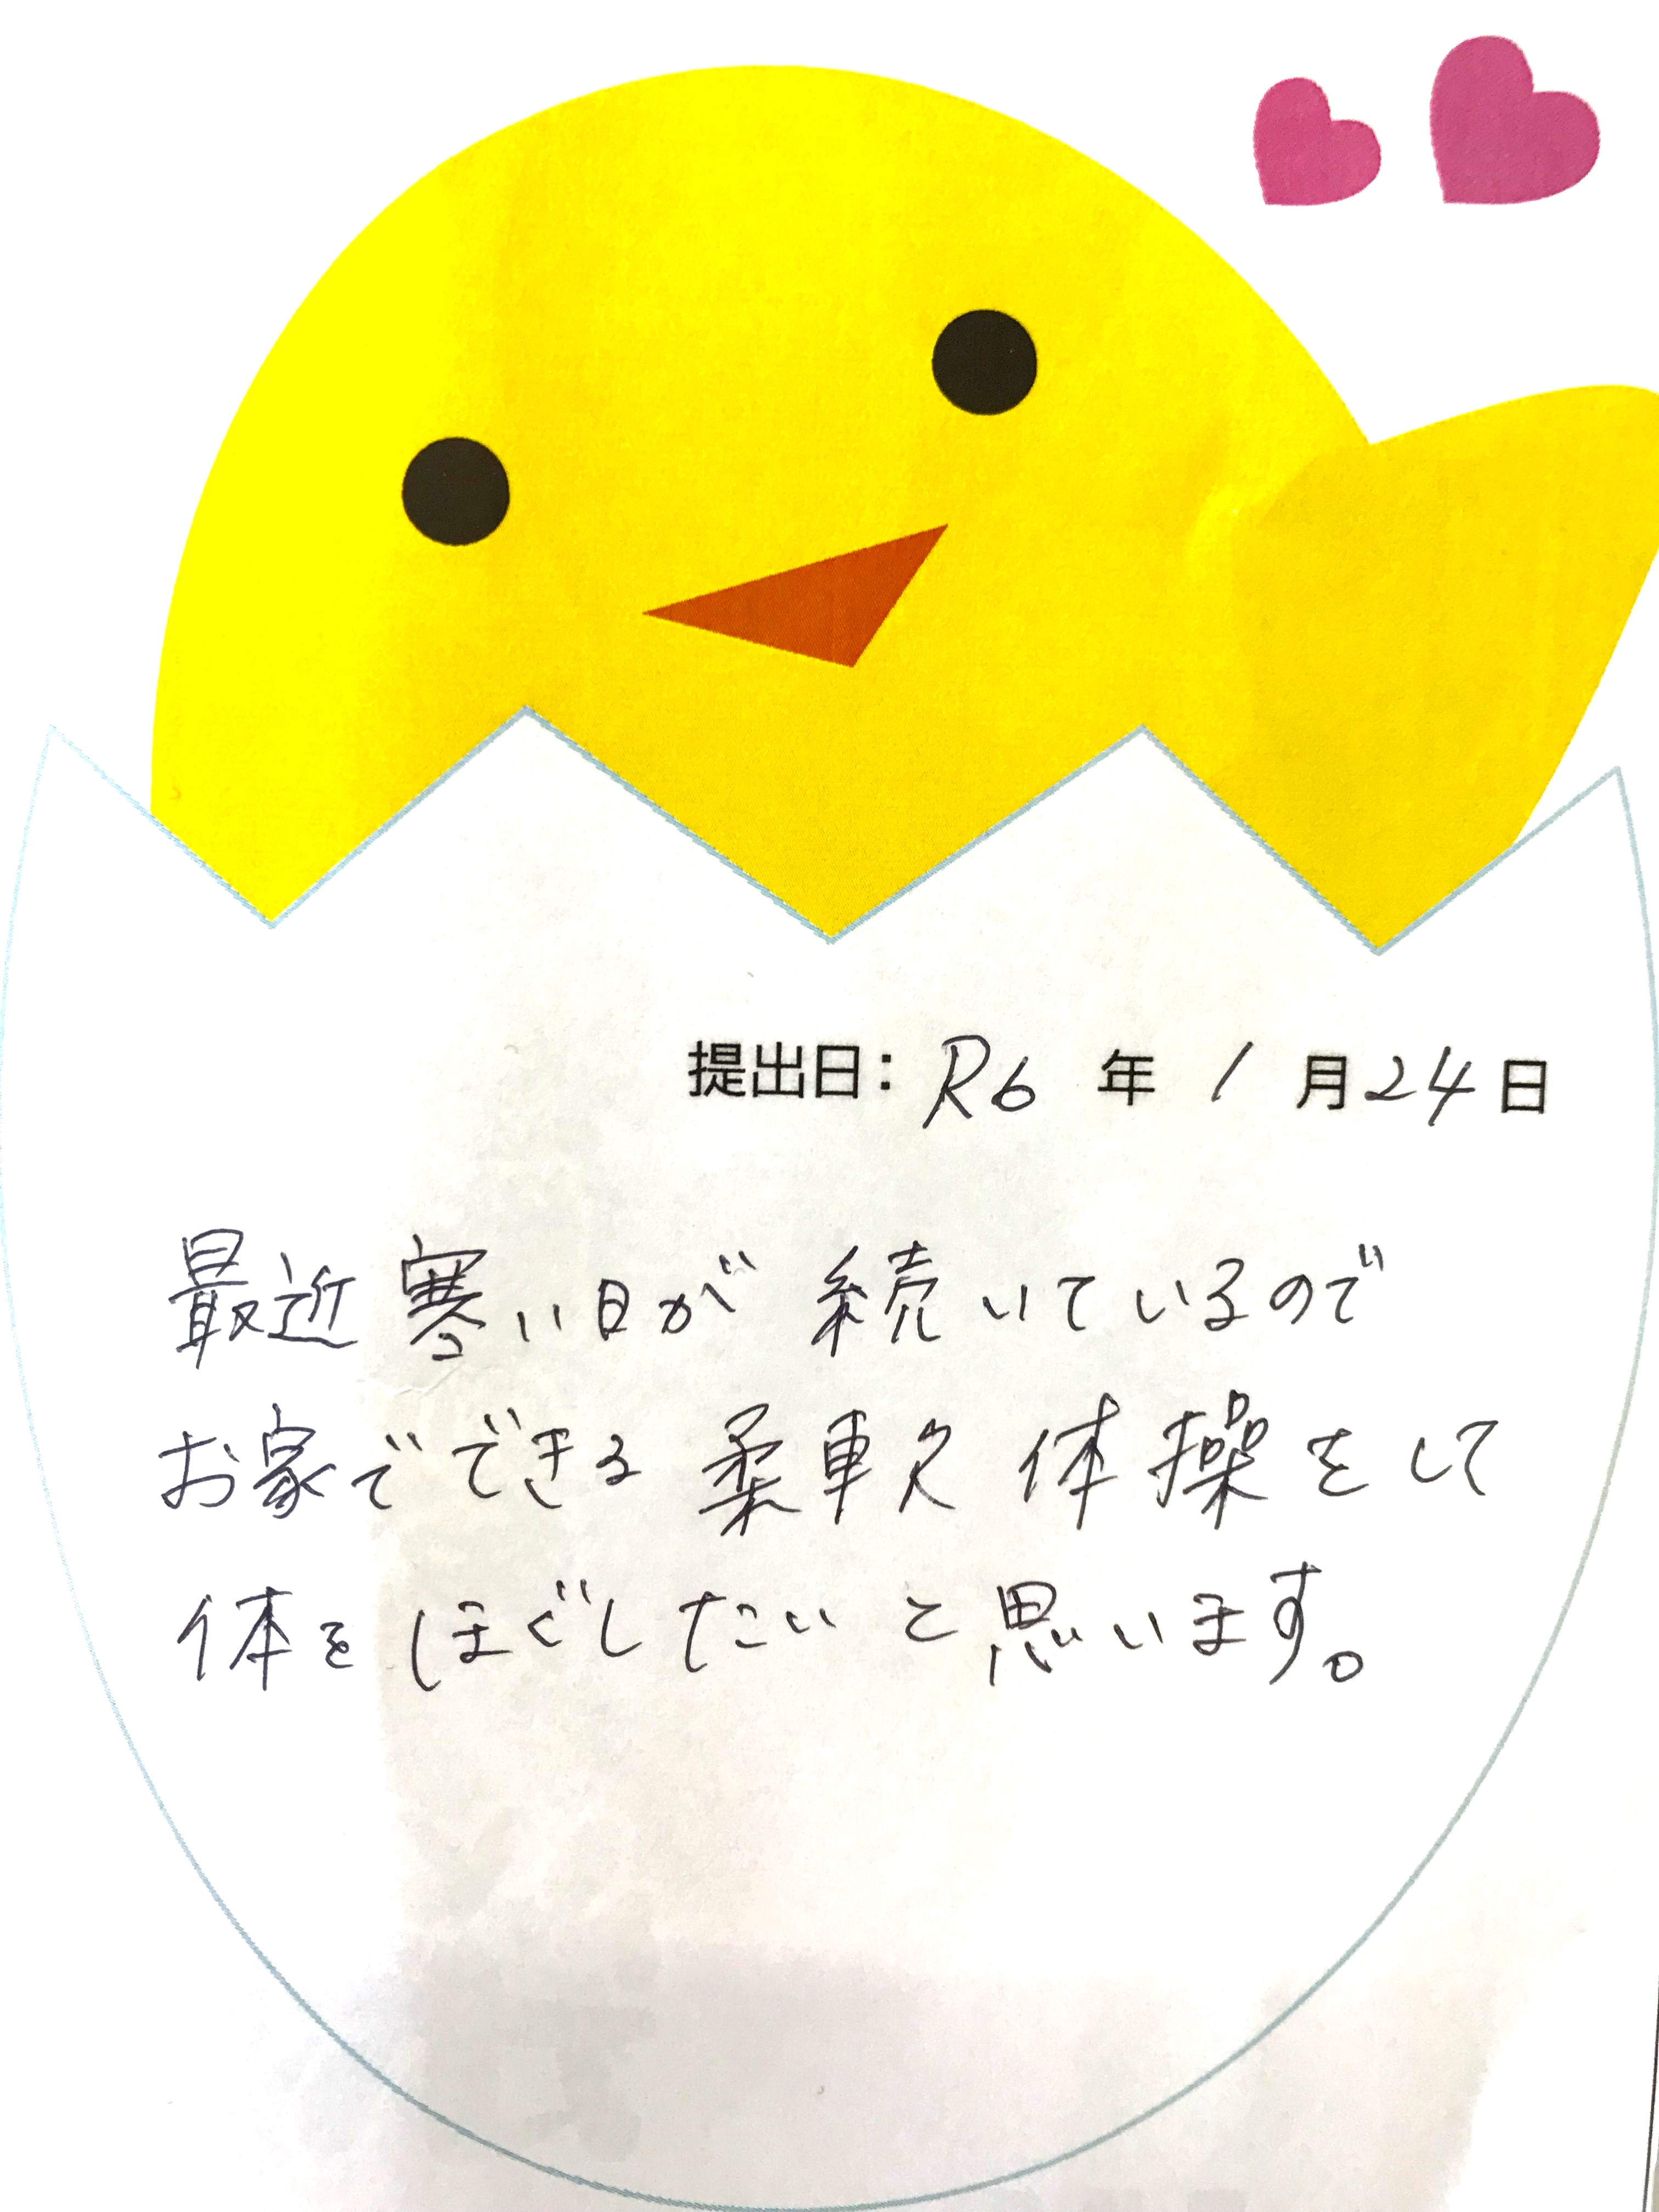 提出日: R6 年 1 月 24 日
最近寒い日が続いているので
お家でできる柔軟体操をして
体をほぐしたいと思います。